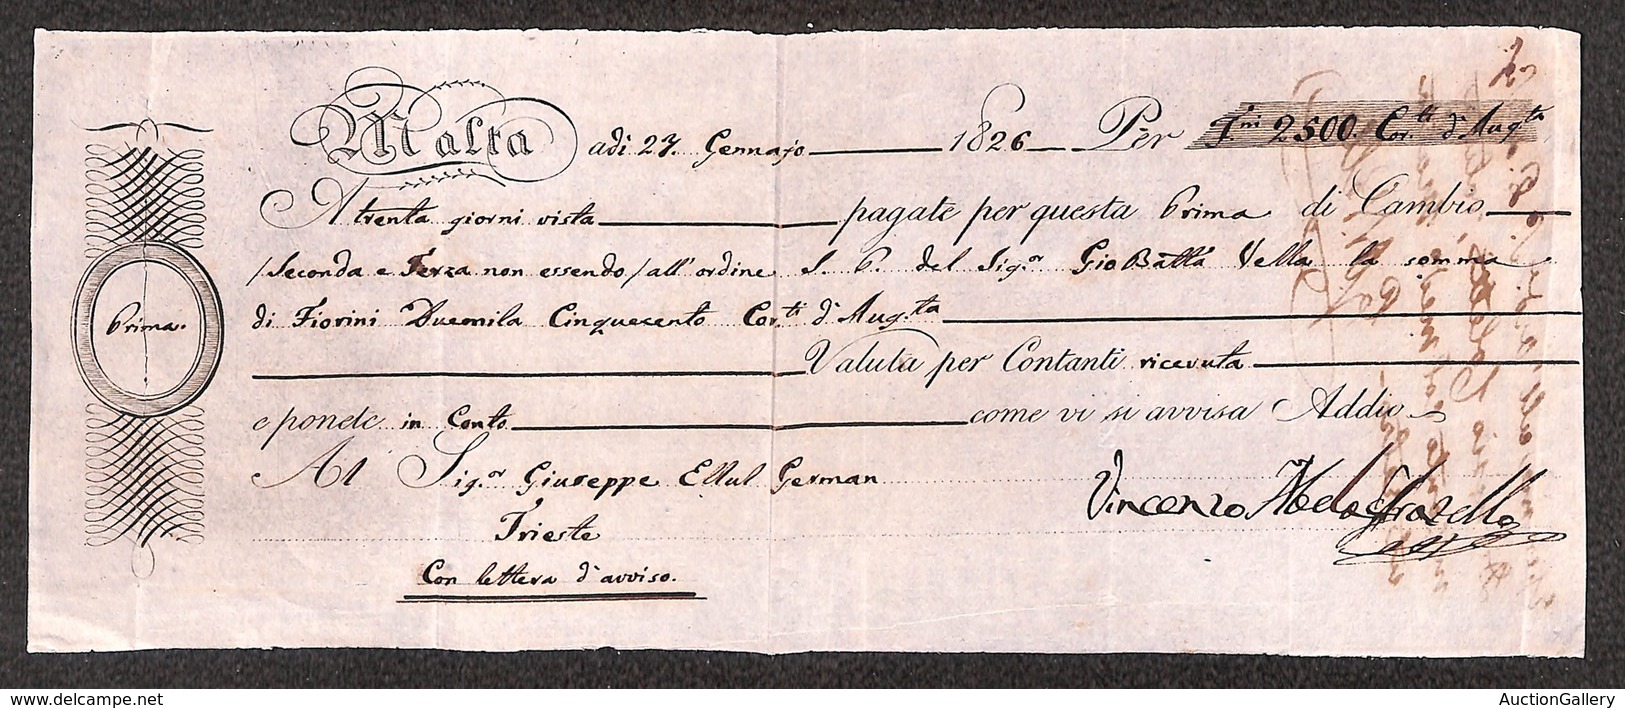 Malta adi 27. Gennajo 1826 Pèr Fni 2500. Cor.ti d'Aug.ta
A trenta giorni vista pagate per questa Prima di Cambio
/Seconda e Terza non essendo/ all' ordine S. P. del Sig.r Gio Batta Vella la somma
di Fiorini Duemila Cinquecento Cor.ti d'Aug.ta
Prima.
Valuta per Contanti ricevuta
e ponete in Conto come vi si avvisa Addio
Al Sig.or Giuseppe Ellul German
Vincenzo
Trieste
Con lettera d'avviso.
AuctionGallery